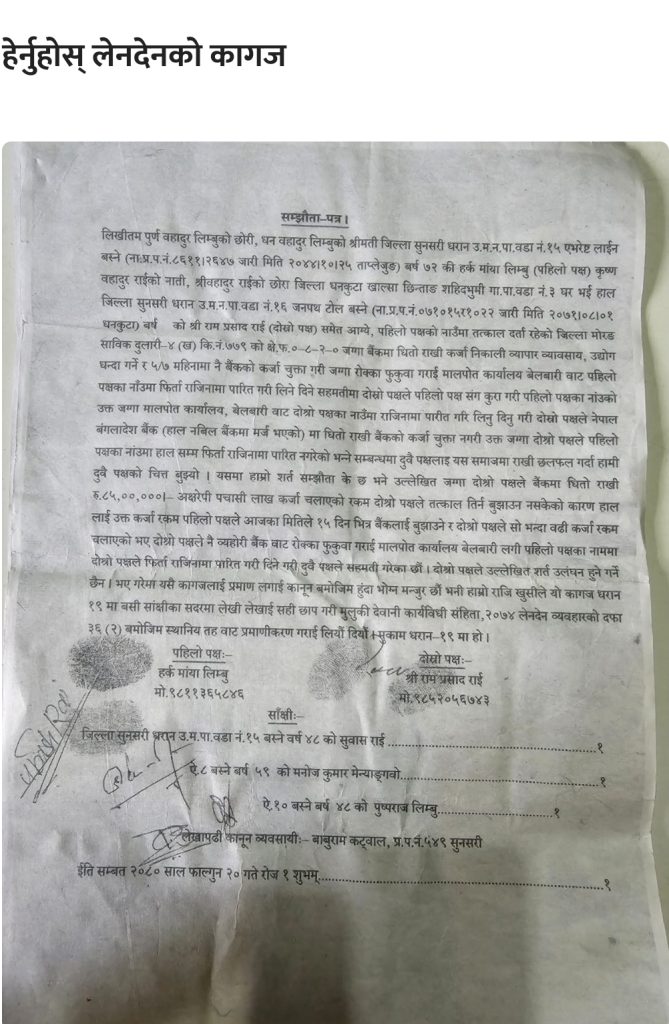 हेर्नुहोस् लेनदेनको कागज
सम्झौता-पत्र ।
लिखीतम पुर्ण वहादुर लिम्बुको छोरी, धन वहादुर लिम्बुको श्रीमती जिल्ला सुनसरी धरान उ.म.न.पा.वडा नं.१५ एभरेष्ट लाईन
बस्ने (ना.प्र.प.नं.८६११।२६४७ जारी मिति २०४४।१०।२५ ताप्लेजुङ) बर्ष ७२ की हर्क मांया लिम्बु (पहिलो पक्ष) कृष्ण
वहादुर राईको नाती, श्रीवहादुर राईको छोरा जिल्ला धनकुटा खाल्सा छिन्ताङ शहिदभुमी गा.पा.वडा नं.३ घर भई हाल
जिल्ला सुनसरी धरान उ.म.न.पा.वडा नं.१६ जनपथ टोल बस्ने (ना.प्र.प.नं.०७१०१५१।१०२२ जारी मिति २०७१।०८।०१
धनकुटा) बर्ष को श्री राम प्रसाद राई (दोस्रो पक्ष) समेत आग्ये, पहिलो पक्षको नाउँमा तत्काल दर्ता रहेको जिल्ला मोरङ
साविक दुलारी-४ (ख) कि.नं.७७९ को क्षे.फ.०-८-२-० जग्गा बैंकमा धितो राखी कर्जा निकाली व्यापार व्यावसाय, उद्योग
धन्दा गर्ने र ५/७ महिनामा नै बैंकको कर्जा चुक्ता गरी जग्गा रोक्का फुकुवा गराई मालपोत कार्यालय बेलबारी वाट पहिलो
पक्षका नाँउमा फिर्ता राजिनामा पारित गरी लिने दिने सहमतीमा दोस्रो पक्षले पहिलो पक्ष संग कुरा गरी पहिलो पक्षका नांउको
उक्त जग्गा मालपोत कार्यालय, बेलबारी वाट दोश्रो पक्षका नाउँमा राजिनामा पारीत गरि लिनु दिनु गरी दोस्रो पक्षले नेपाल
बंगलादेश बैंक (हाल नबिल बैंकमा मर्ज भएको) मा धितो राखी बैंकको कर्जा चुक्ता नगरी उक्त जग्गा दोश्रो पक्षले पहिलो
पक्षका नांउमा हाल सम्म फिर्ता राजिनामा पारित नगरेको भन्ने सम्बन्धमा दुवै पक्षलाइ यस समाजमा राखी छलफल गर्दा हामी
दुवै पक्षको चित्त बुझ्यो । यसमा हाम्रो शर्त सम्झौता के छ भने उल्लेखित जग्गा दोश्रो पक्षले बैंकमा धितो राखी
रु.८५,००,०००।- अक्षरेपी पचासी लाख कर्जा चलाएको रकम दोश्रो पक्षले तत्काल तिर्न बुझाउन नसकेको कारण हाल
लाई उक्त कर्जा रकम पहिलो पक्षले आजका मितिले १५ दिन भित्र बैंकलाई बुझाउने र दोश्रो पक्षले सो भन्दा वढी कर्जा रकम
चलाएको भए दोश्रो पक्षले नै व्यहोरी बैंक वाट रोक्का फुकुवा गराई मालपोत कार्यालय बेलबारी लगी पहिलो पक्षका नाममा
दोश्रो पक्षले फिर्ता राजिनामा पारित गरी दिने गरी दुवै पक्षले सहमती गरेका छौं । दोश्रो पक्षले उल्लेखित शर्त उलंघन हुने गर्ने
छैन । भए गरेमा यसै कागजलाई प्रमाण लगाई कानून बमोजिम हुंदा भोग्न मन्जुर छौं भनी हाम्रो राजि खुसीले यो कागज धरान
१९ मा बसी सांक्षीका सदरमा लेखी लेखाई सही छाप गरी मुलुकी देवानी कार्यविधी संहिता,२०७४ लेनदेन व्यवहारको दफा
३६ (२) बमोजिम स्थानिय तह वाट प्रमाणीकरण गराई लियौं दियौं । मुकाम धरान-१९ मा हो ।
पहिलो पक्षः-
हर्क मांया लिम्बु
मो.९८११३६५८४६
दोस्रो पक्षः-
श्री राम प्रसाद राई
मो.९८५२०५६७४३
साँक्षीः-
जिल्ला सुनसरी धरान उ.म.पा.वडा नं.१५ बस्ने वर्ष ४८ को सुवास राई ........................................१
ऐ.८ बस्ने बर्ष ५९ को मनोज कुमार मेन्याङ्गवो........................................१
ऐ.१० बस्ने बर्ष ४८ को पुष्पराज लिम्बु........................१
लेखापढी कानून व्यवसायीः- बाबुराम कट्वाल, प्र.प.नं.५४९ सुनसरी
ईति सम्बत २०८० साल फाल्गुन २० गते रोज १ शुभम्............................................................१